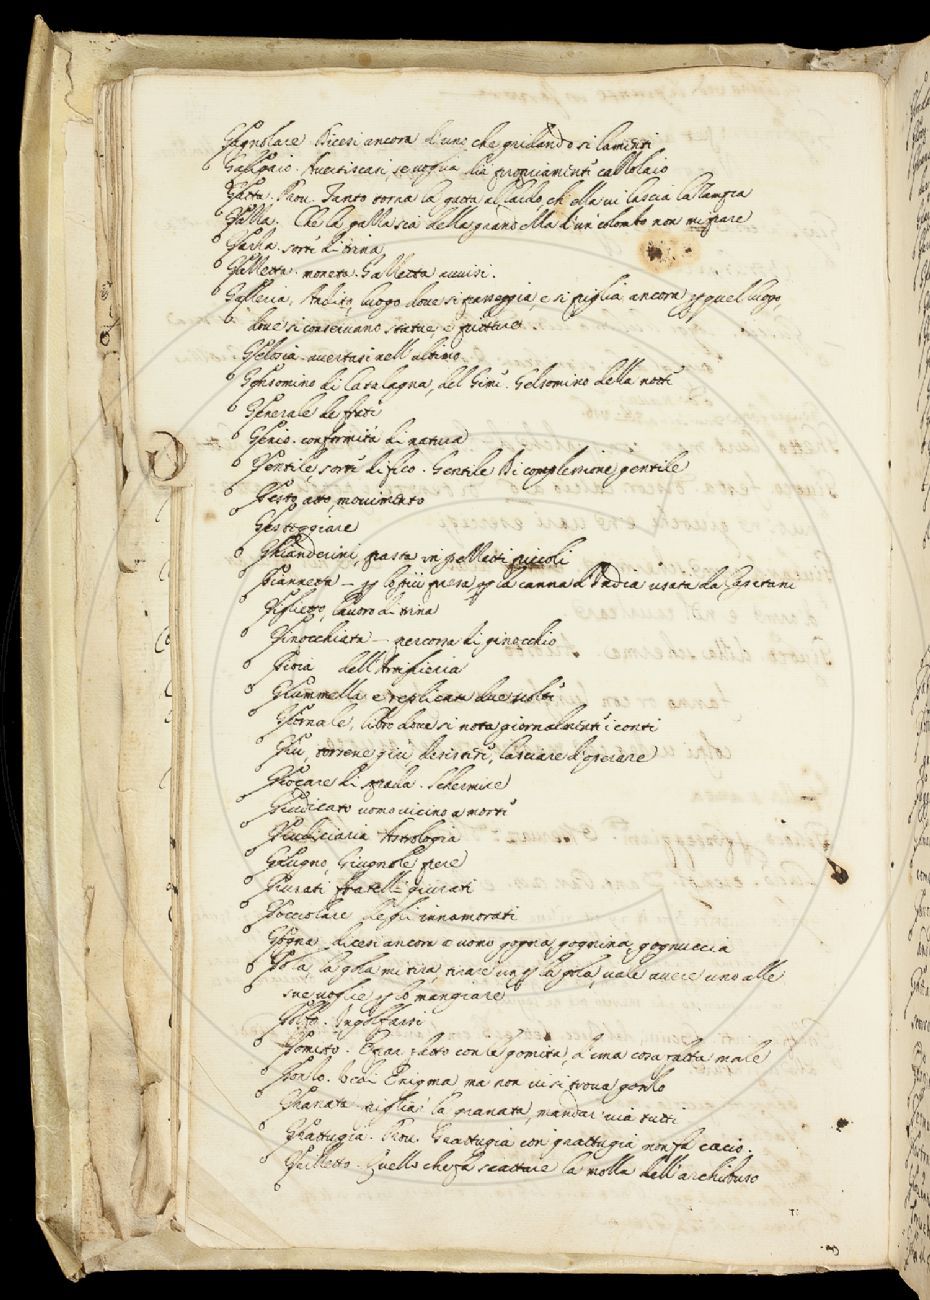 Gagnolare Dicesi ancora d'uno che gridando si lamenti
Galligaio. Avertiscasi, se voglia dir propriamente
Gatta. Prov. Tanto torna la gatta al lardo, ch'ella vi lascia la zampa
Galla. Che la galla sia della grandella d'un colombo non mi pare
sorte di trina
Galletta. moneta. Galletta avvisi.
Galleria, Andito, luogo dove si passeggia, e si piglia ancora per quel luogo,
dove si conservano statue, e pitture
Gelosia. avertasi nell'ultimo
Gelsomino di Catalogna, del Gimè. Gelsomino della notte
Generale de frati
Genio. conformità di natura
Gentile, sorte di fico. Gentile Di complessione gentile
Gesto, atto, movimento
Gesteggiare
Ghianderini, pasta in pezzetti piccoli
Giannetta per la canna d'India usata da Capitani
Giglietto, lavoro di trina
Ginocchiata percossa di ginocchio
Gioia dell'Artiglieria
Giummella e replicata due volte
Giornale, libro dove si nota giornalmente i conti
Giù, torrene giù, desistere, lasciare d'operare
Giocare di spada. Schermire
Giudicato uomo vicino a morte
Giudiciaria Astrologia
Giugno, Giugnole pere
Giurati fratelli giurati
Gocciolare degli innamorati
Gogna, dicesi ancora a uomo gogna, gognina, gognuccia
Gola, la gola mi tira, tirare un per la gola, vale avere uno alle
sue voglie per lo mangiare
Golfo. Ingolfarsi
Gomito. Esser fatto con le gomita, d'una cosa fatta male
Gonzo. Vedi Enigma, ma non vi si trova gonzo
Granata piglia la granata, mandar via tutti
Grattugia. Prov. Grattugia con grattugia non fa cacio.
Grilletto. Quello che fa scattare la molla dell'archibuso